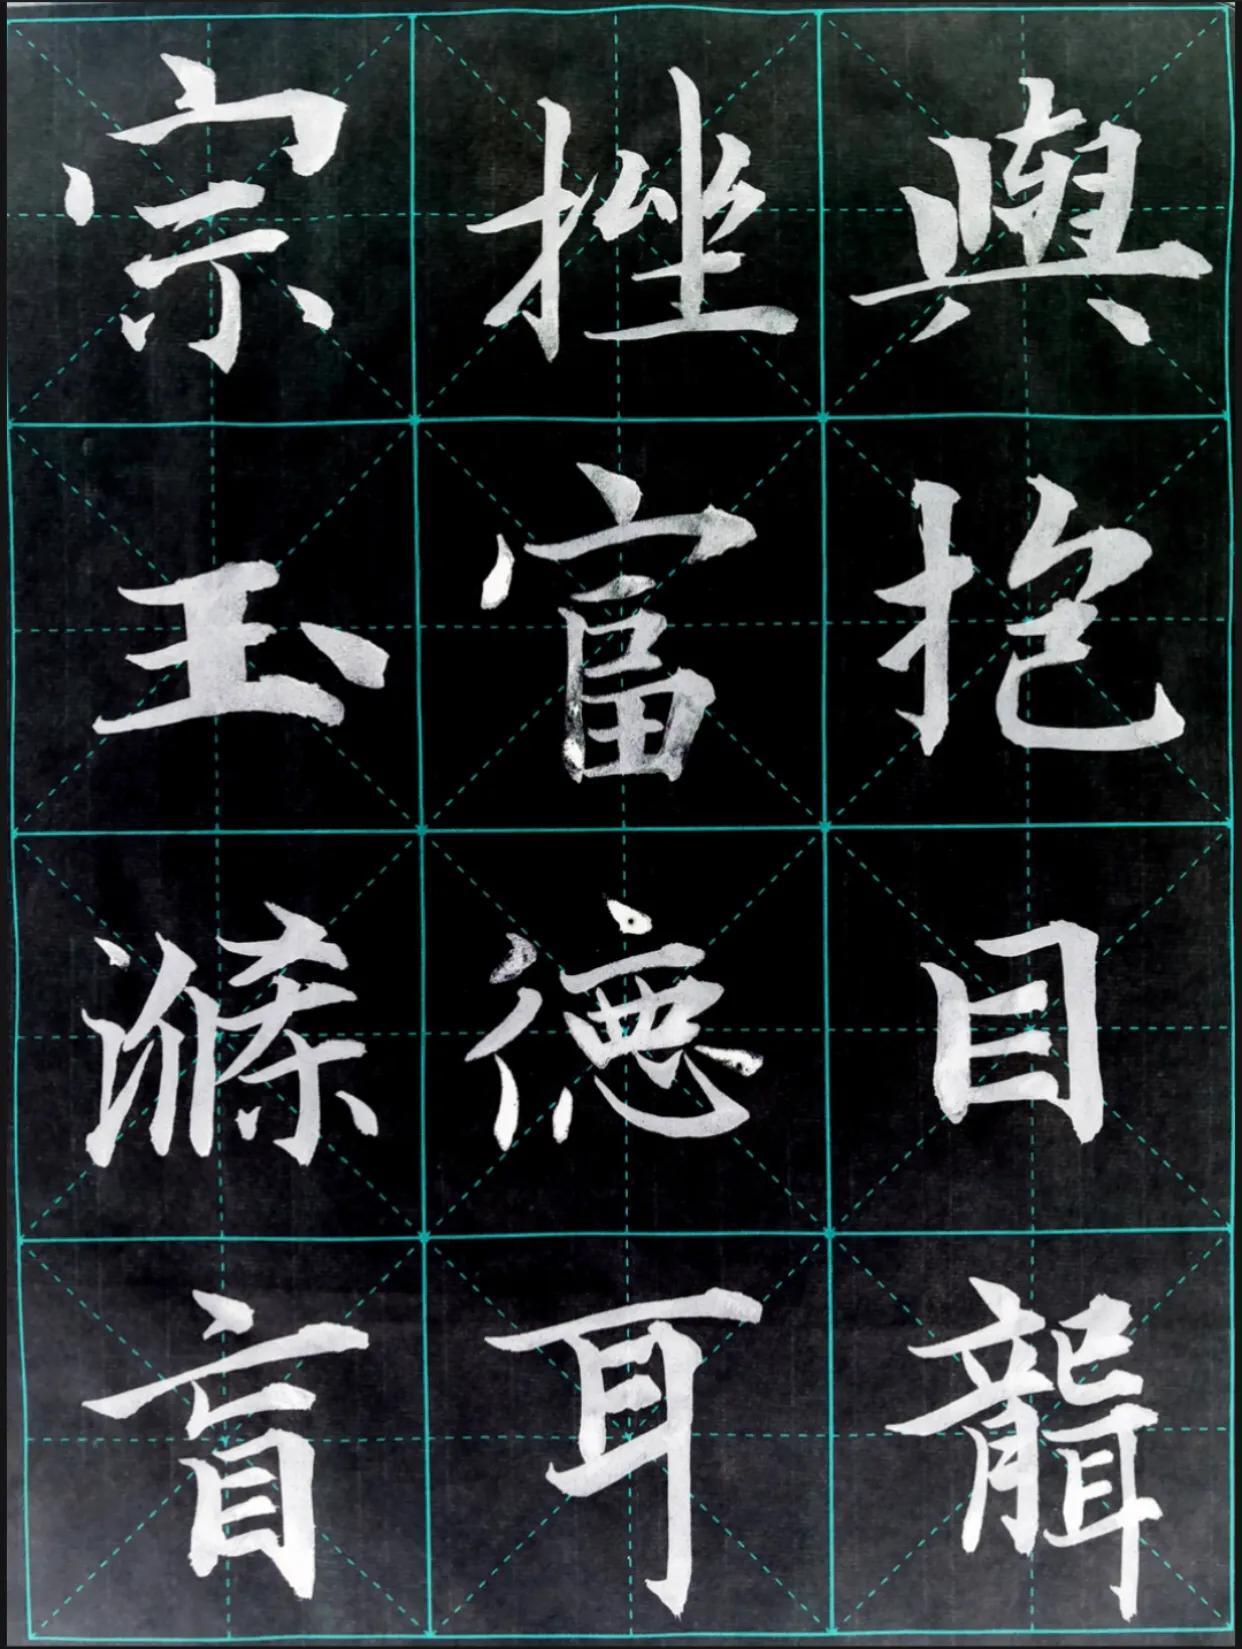 宗挫與
玉富抱
滌德目
盲耳聾